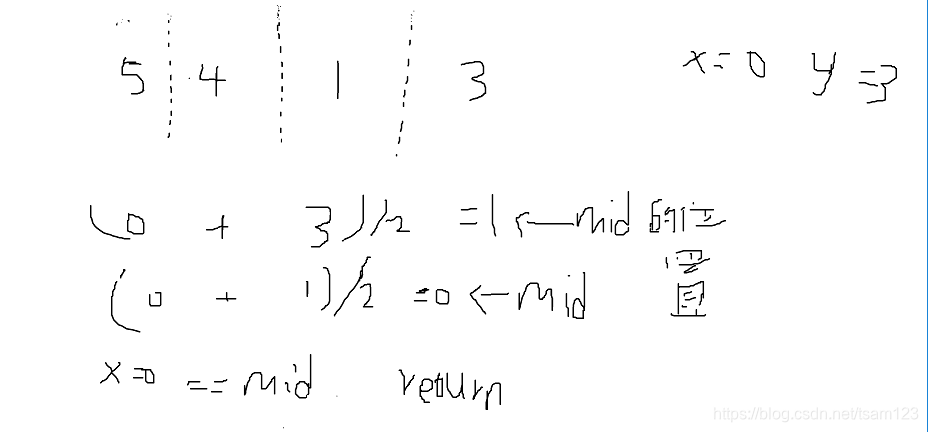 5 4 1 3 x=0 y=3
(0 + 3)/2 =1 ←mid 的位置
(0 + 1)/2 =0 ←mid
x=0 == mid return
https://blog.csdn.net/tsam123